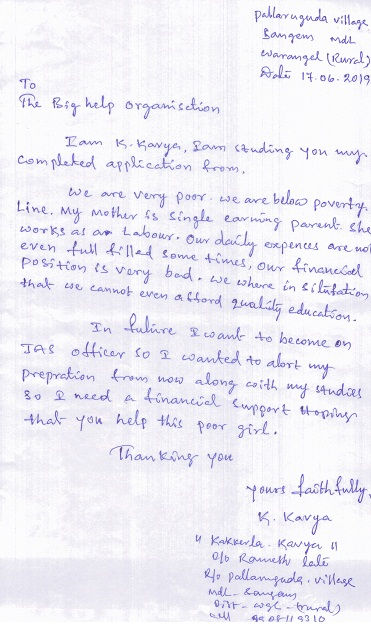 pallaruguda village
Sangem mdl
warangal (Rural)
Date 17.06.2019
To
The Big help organisation
I am K. Kavya, I am studing you my
completed application from.
we are very poor. we are below poverty
Line. My Mother is single earning parent. she
works as an Labour. Our daily expences are not
even full filled some times, Our financial
position is very bad. we where in situtation
that we cannot even afford quality education.
In future I want to become an
IAS officer so I wanted to alort my
prepration from now along with my studies
so I need a financial support Hoping
that you help this poor girl.
Thanking you
yours faithfully,
K. Kavya
" Kakkerla. Kavya "
D/o Ramesh late
R/o pallaruguda. village
mdl - Sangam
Dist - wgl - (rural)
cell